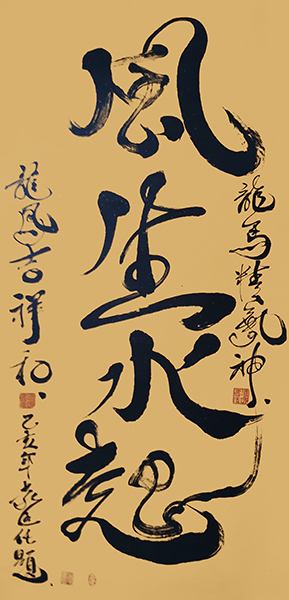 龍馬精氣神
風生水起
龍鳳吉祥和
己亥年題